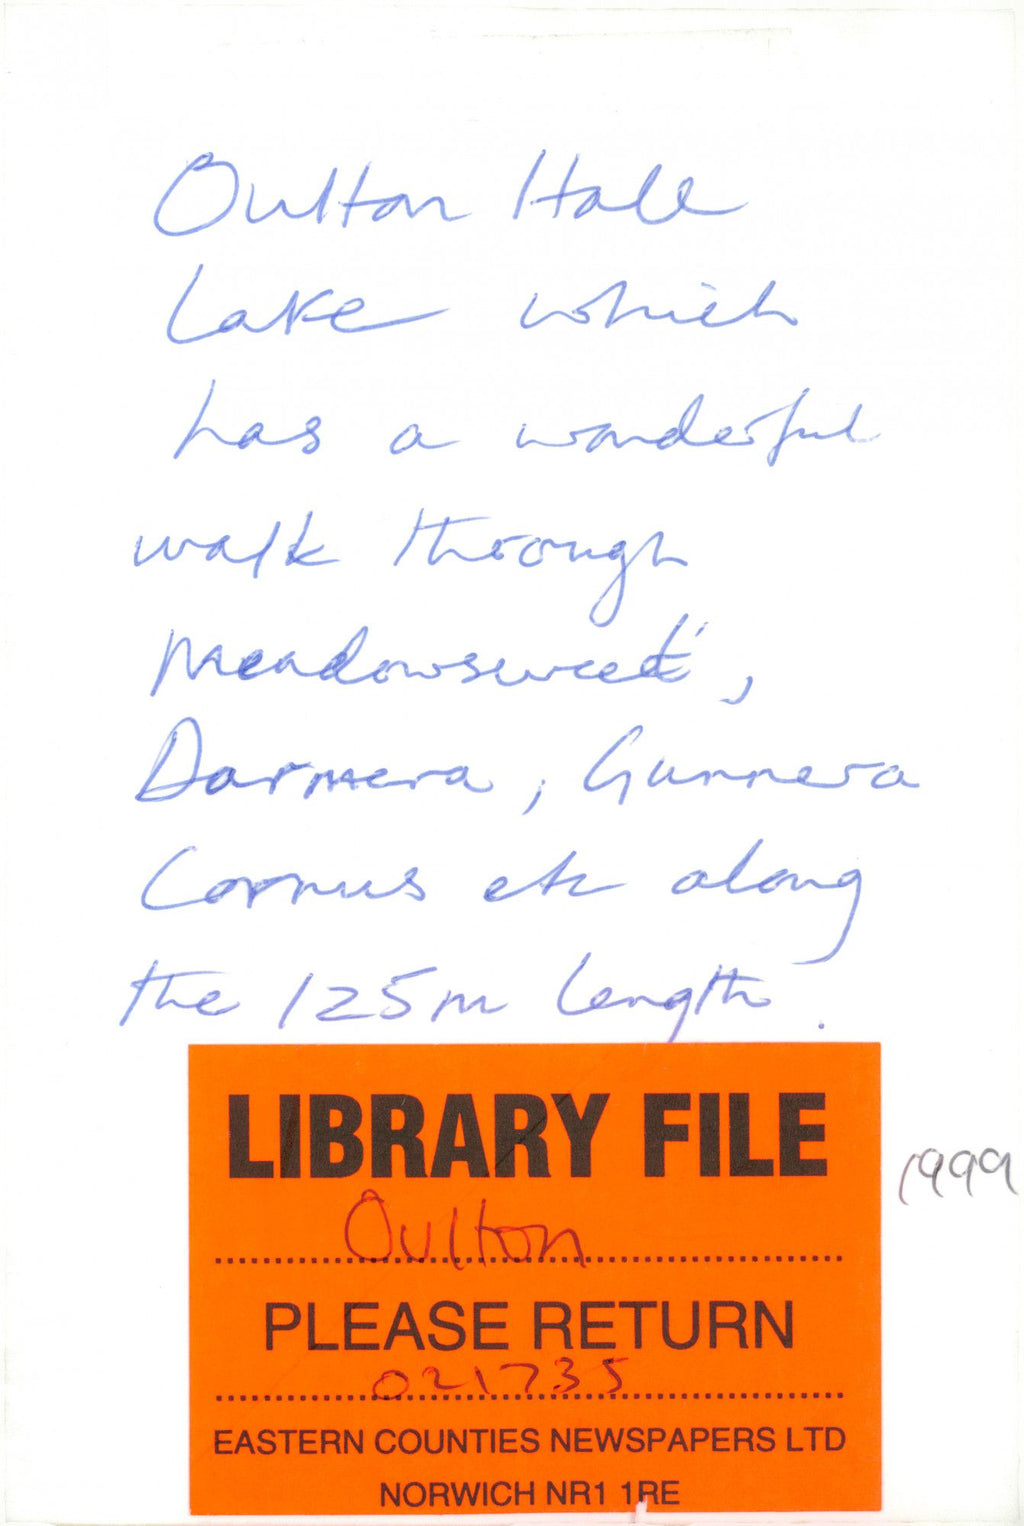 Oulton Hall
Lake which
has a wonderful
walk through
Meadowsweet,
Darmera, Gunnera
Cornus etc along
the 125m length.
LIBRARY FILE
Oulton
1999
PLEASE RETURN
021735
EASTERN COUNTIES NEWSPAPERS LTD
NORWICH NR1 1RE